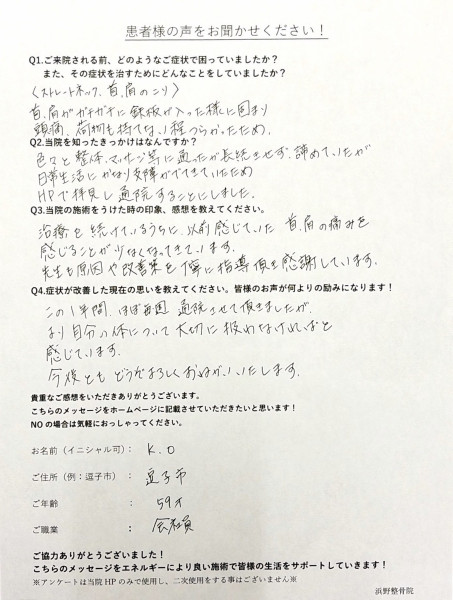 患者様の声をお聞かせください！
Q1.ご来院される前、どのようなご症状で困っていましたか？
また、その症状を治すためにどんなことをしていましたか？
〈ストレートネック、首、肩のこり〉
首、肩がガチガチに鉄板が入った様に固まり
頭痛、荷物も持てない程つらかったため。
Q2.当院を知ったきっかけはなんですか？
色々と整体、マッサージ等に通ったが長続きせず、諦めていたが
日常生活にかなり支障がでてきていたため
HPで拝見し通院することにしました。
Q3.当院の施術をうけた時の印象、感想を教えてください。
治療を続けているうちに、以前感じていた首、肩の痛みを
感じることが少なくなってきています。
先生も原因や改善策を丁寧に指導頂き感謝しています。
Q4.症状が改善した現在の思いを教えてください。皆様のお声が何よりの励みになります！
この1年間、ほぼ毎週通院させて頂きましたが、
より自分の体について大切に扱わなければと
感じています。
今後とも どうぞよろしくおねがいいたします。
貴重なご感想をいただきありがとうございます。
こちらのメッセージをホームページに記載させていただきたいと思います！
NOの場合は気軽におっしゃってください。
お名前（イニシャル可）： K.O
ご住所（例：逗子市）： 逗子市
ご年齢 ： 59才
ご職業 ： 会社員
ご協力ありがとうございました！
こちらのメッセージをエネルギーにより良い施術で皆様の生活をサポートしていきます！
※アンケートは当院HPのみで使用し、二次使用をする事はございません※
浜野整骨院